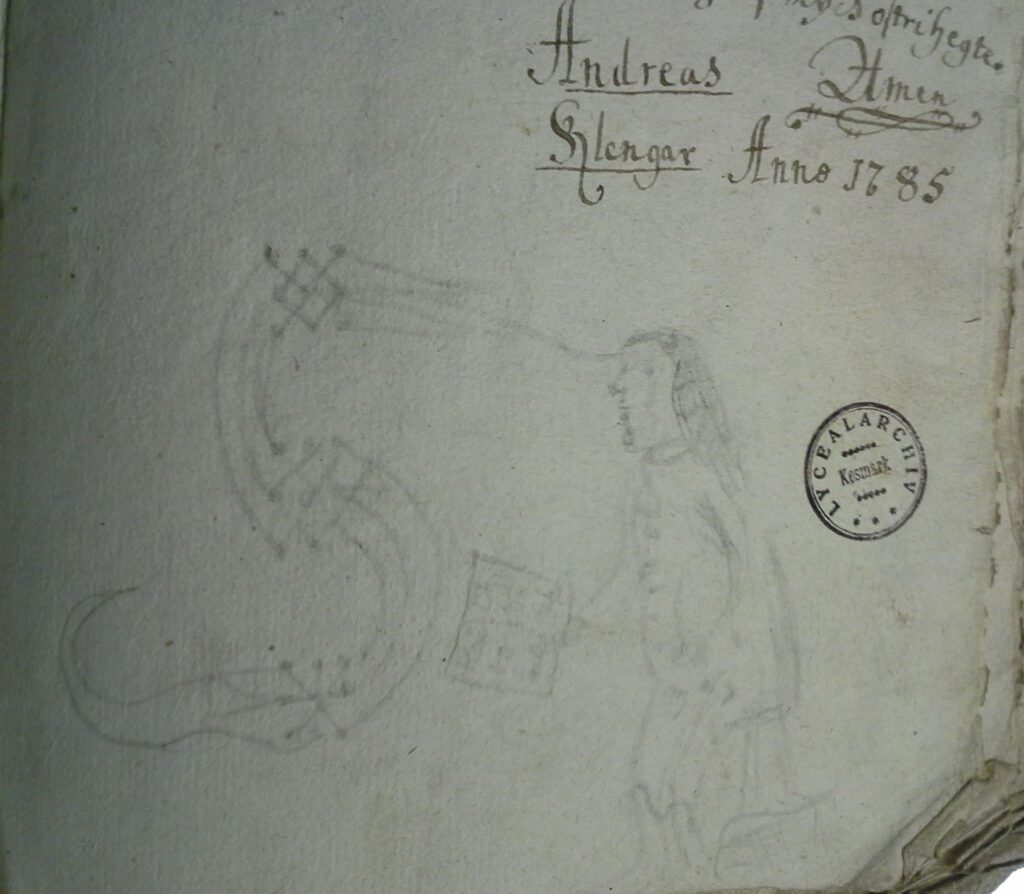 Andreas Amen
Klengar Anno 1785
LYCEALARCHIV
Kesmark